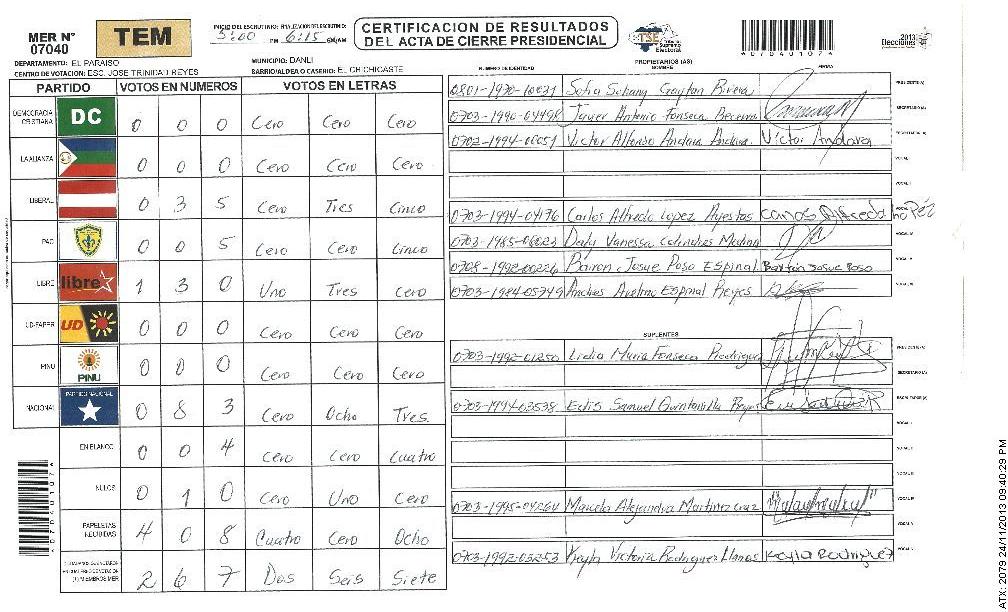 MER N° 07040
TEM
INICIO DEL ESCRUTINIO: FINALIZACION DEL ESCRUTINIO:
5:00 PM 6:15 AM/AM
CERTIFICACION DE RESULTADOS
DEL ACTA DE CIERRE PRESIDENCIAL
TSE Tribunal Supremo Electoral
*070401074*
2013 Elecciones
DEPARTAMENTO: EL PARAISO
MUNICIPIO: DANLI
CENTRO DE VOTACION: ESC. JOSE TRINIDAD REYES
BARRIO/ALDEA O CASERIO: EL CHICHICASTE
PARTIDO VOTOS EN NUMEROS VOTOS EN LETRAS
DEMOCRACIA CRISTIANA DC 0 0 0 Cero Cero Cero
LA ALIANZA 0 0 0 Cero Cero Cero
LIBERAL 0 3 5 Cero Tres Cinco
PAC 0 0 5 Cero Cero Cinco
LIBRE libre 1 3 0 Uno Tres Cero
UD-FAPER UD 0 0 0 Cero Cero Cero
PINU PINU 0 0 0 Cero Cero Cero
NACIONAL PARTIDO NACIONAL 0 8 3 Cero Ocho Tres
EN BLANCO 0 0 4 Cero Cero Cuatro
NULOS 0 1 0 Cero Uno Cero
PAPELETAS RECIBIDAS 4 0 8 Cuatro Cero Ocho
(1) MIEMBROS MER 2 6 7 Dos Seis Siete
*070401074*
PROPIETARIOS (AS)
NUMERO DE IDENTIDAD NOMBRE FIRMA
0801-1970-10031 Sofia Gaytan Rivera PRESIDENTE(A)
0703-1990-04498 Javier Antonio Fonseca Becerra SECRETARIO (A)
0702-1994-00051 Victor Alfonso Andara Andara Victor Andara ESCRUTADOR (A)
VOCAL I
VOCAL II
0703-1994-04176 Carlos Alfredo Lopez Ayestas Carlos Alfredo VOCAL
0703-1985-03623 Dania Vanessa Colindres Medina VOCAL
0708-1992-00226 Bairon Josue Poso Espinal Bairon Josue Poso VOCAL
0703-1984-05749 Andres Avelino Espinal Reyes VOCAL
SUPLENTES
0703-1992-01250 Lidia Maria Fonseca Rodriguez PRESIDENTE (A)
SECRETARIO (A)
0703-1994-03538 Edis Samuel Quintanilla Reyes ESCRUTADOR (A)
VOCAL I
VOCAL II
VOCAL III
0703-1995-04264 Marcela Alejandra Martinez Cruz VOCAL IV
VOCAL V
0703-1992-03253 Keyla Victoria Rodriguez Llanos Keyla Rodriguez VOCAL
ATX: 2079 24/11/2013 09:40:29 PM